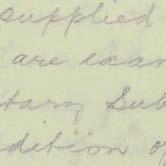 supplied
are exam
tary Sub
dition of